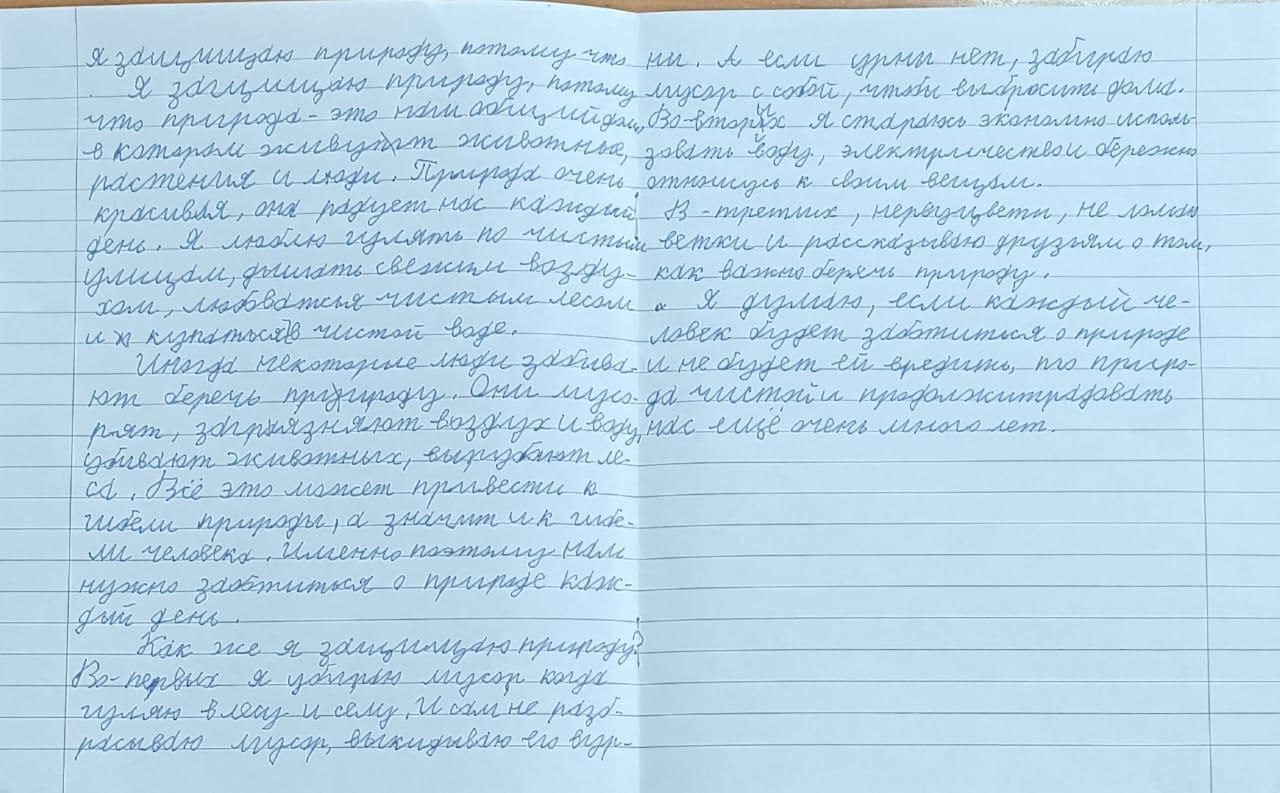 Я защищаю природу, потому что
Я защищаю природу, потому
что природа - это наш общий дом,
в котором живут животные,
растения и люди. Природа очень
красивая, она радует нас каждый
день. Я люблю гулять по чистым
улицам, дышать свежим возду-
хом, любоваться чистым лесом
и купаться в чистой воде.
Иногда некоторые люди забыва-
ют беречь природу. Они мусо-
рят, загрязняют воздух и воду,
убивают животных, вырубают ле-
са. Всё это может привести к
гибели природы, а значит и к гибе-
ли человека. Именно поэтому нам
нужно заботиться о природе каж-
дый день.
Как же я защищаю природу?
Во-первых я убираю мусор когда
гуляю в лесу и селу. И сам не разб-
расываю мусор, выкидываю его в ур-
ны. А если урны нет, забираю
мусор с собой, чтобы выбросить дома.
Во-вторых я стараюсь экономно исполь-
зовать воду, электричество и бережно
отношусь к своим вещам.
В-третих, не рву цветы, не ломаю
ветки и рассказываю друзьям о том,
как важно беречь природу.
Я думаю, если каждый че-
ловек будет заботиться о природе
и не будет ей вредить, то приро-
да чистой и продолжит радовать
нас ещё очень много лет.